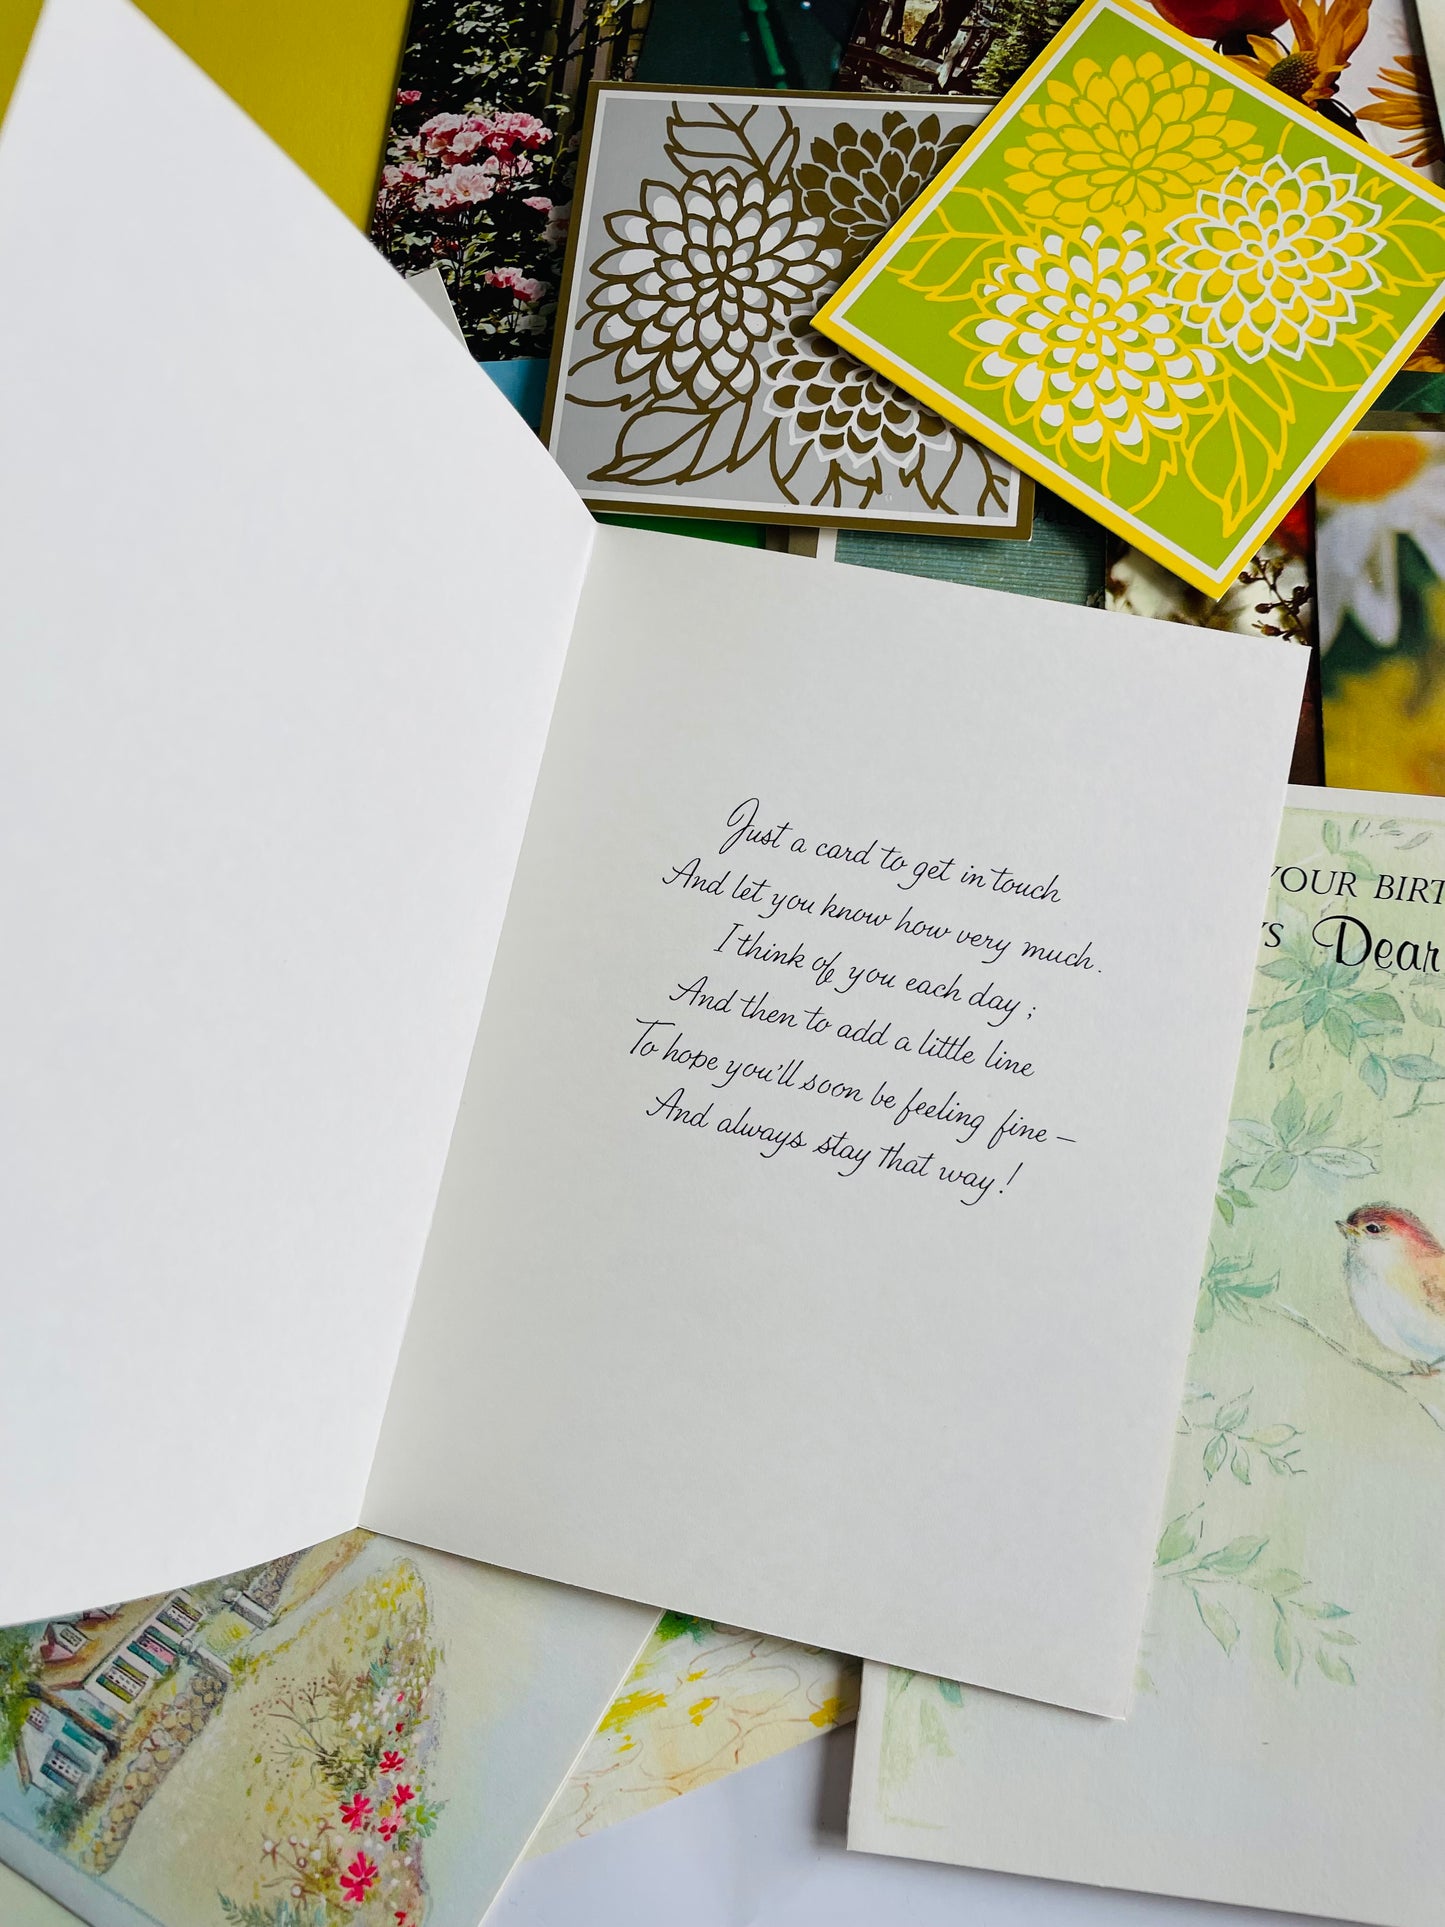 Just a card to get in touch
And let you know how very much.
I think of you each day ;
And then to add a little line
To hope you'll soon be feeling fine –
And always stay that way !
YOUR BIRT
Dear